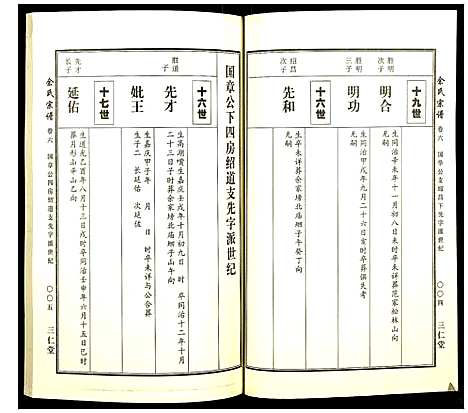 余氏宗谱
卷六
国章公支绍昌下先字派世纪
〇〇四
三仁堂
十九世
胜明
次子
明合
生同治辛未年十一月初八日未时卒未详葬范家松林山向
无嗣
胜明
三子
明功
生同治甲戌年九月二十六日寅时卒葬俱失考
无嗣
十六世
绍昌
次子
先和
生卒未详葬余家塝北庙垇子午癸丁向
无嗣
国章公下四房绍道支先字派世纪
十六世
胜道
子
先才
生高湖嘴生嘉庆壬戌年十月初九日时卒同治十二年十月
二十三日子时葬余家塝北庙垇子山午向
妣王
生嘉庆甲子年 月 日 时卒未详与公合葬
生子二 长延佑 次延佐
十七世
先才
长子
延佑
生道光乙酉年八月十三日戌时卒同治壬申年六月十五日巳时
葬杉形山辛山乙向
余氏宗谱
卷六
国章公四房绍道支先字派世纪
〇〇五
三仁堂